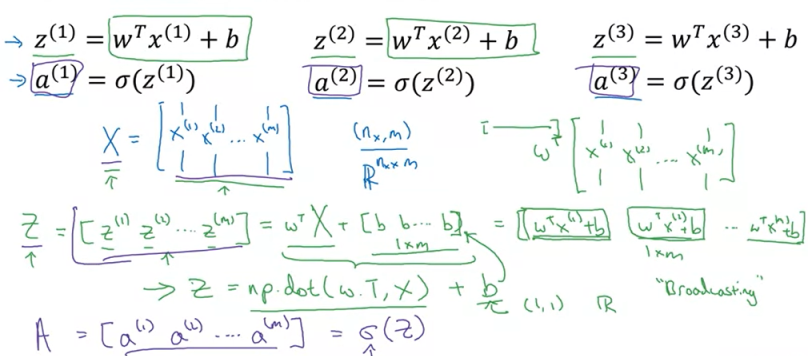 → z^(1) = w^T x^(1) + b    z^(2) = w^T x^(2) + b    z^(3) = w^T x^(3) + b
→ a^(1) = σ(z^(1))    a^(2) = σ(z^(2))    a^(3) = σ(z^(3))
X = [x^(1) x^(2) ... x^(m)]    (n_x, m)    w^T [x^(1) x^(2) ... x^(m)]
ℝ^(n_x × m)
Z = [z^(1) z^(2) ... z^(m)] = w^T X + [b b ... b] = [w^T x^(1)+b    w^T x^(2)+b    ...    w^T x^(m)+b]
1×m    1×m
→ Z = np.dot(w.T, X) + b    (1,1)    ℝ    "Broadcasting"
A = [a^(1) a^(2) ... a^(m)] = σ(Z)